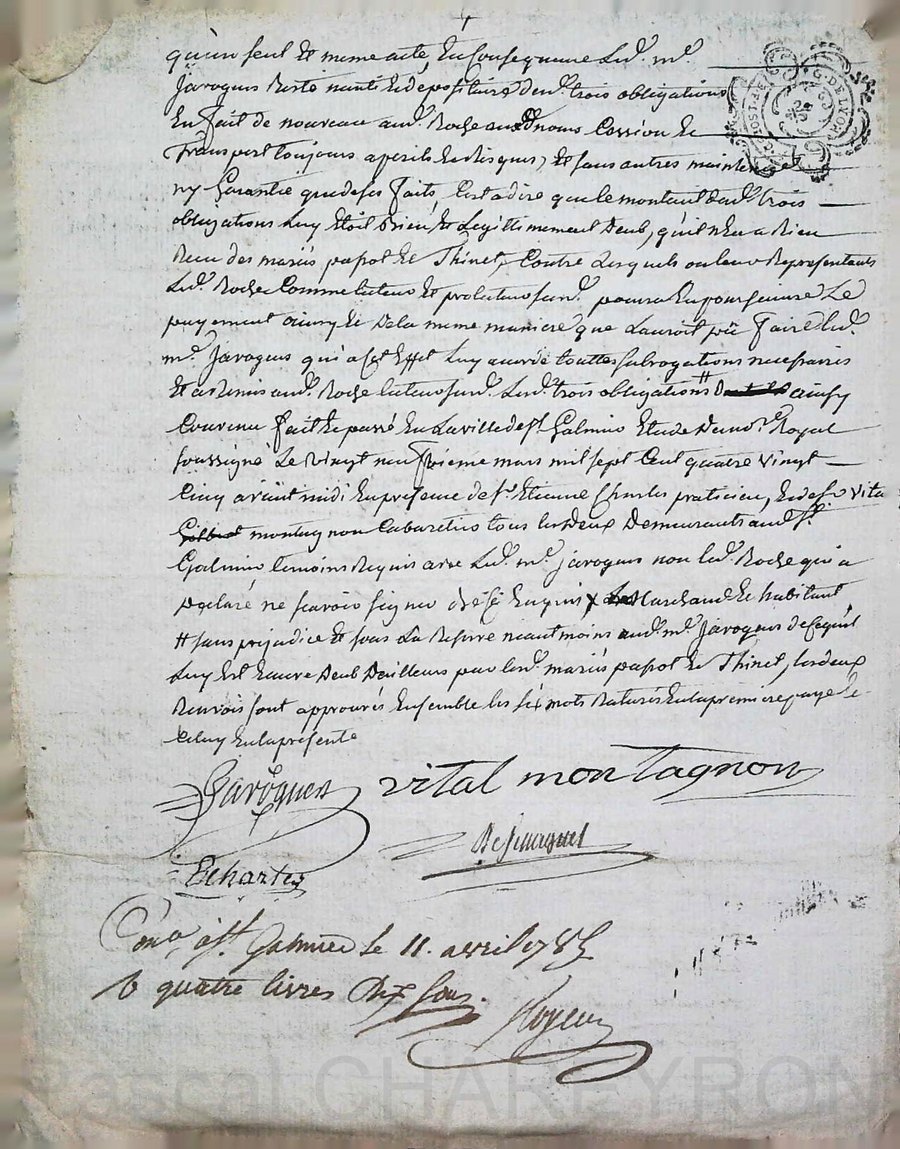 qu'un seul et meme acte, En Consequence Led. mr.
Jaroguer Reste nanti Et depositaire desd. trois obligations
En fait de nouveau aud. Roche auxd. noms Cession Et
Transport toujours a perils Et Risques, Et sans autres maintenue
ny Garantie que de ses faits, C'est a dire que le montent desd. trois
obligations Luy Etoit bien Et Legittimement Deub, qu'il n'En a Rien
Recu des mariés papot Et Thinet, Contre Lesquels ou leurs Representants
Led. Roche Comme tuteur Et protuteur susd. poura En poursuivre Le
payement ainsy Et de la meme maniere que Lauroit pû Faire led.
mr. Jaroguer qui a Cet Effet Luy accorde touttes subrogations necessaires
Et a Remis aud. Roche tuteur susd. Lesd. trois obligations # ainsy
Convenu fait Et passé En La ville de st. Galmier Etude Du no.re Royal
soussigné Le vingt neuf vieme mars mil sept Cent quatre vingt
Cinq avant midi En presence de sr. Etienne Charles praticien, Et de sr vital
montagnon Cabaretier tous Les deux Demeurants aud. st.
Galmier temoins Requis avec Led. mr. jaroguer non led. Roche qui a
Declaré ne scavoir signer de ce Enquis x Marchand Et habitant
# sans prejudice Et sous La Reserve neantmoins aud. mr. Jaroguer de Ce qu'il
Luy Est Encore Deub D'ailleurs par lesd. mariés papot Et Thinet, Les deux
Renvois sont approuvés Ensemble les six mots Raturés En la premiere page Et
Celuy En la presente
Jaroguer vital montagnon
E charles
Con.a a st. Galmier Le 11. avril 1785
R quatre livres Dix sous.
G. DE LYON
Pascal CHAREYRON